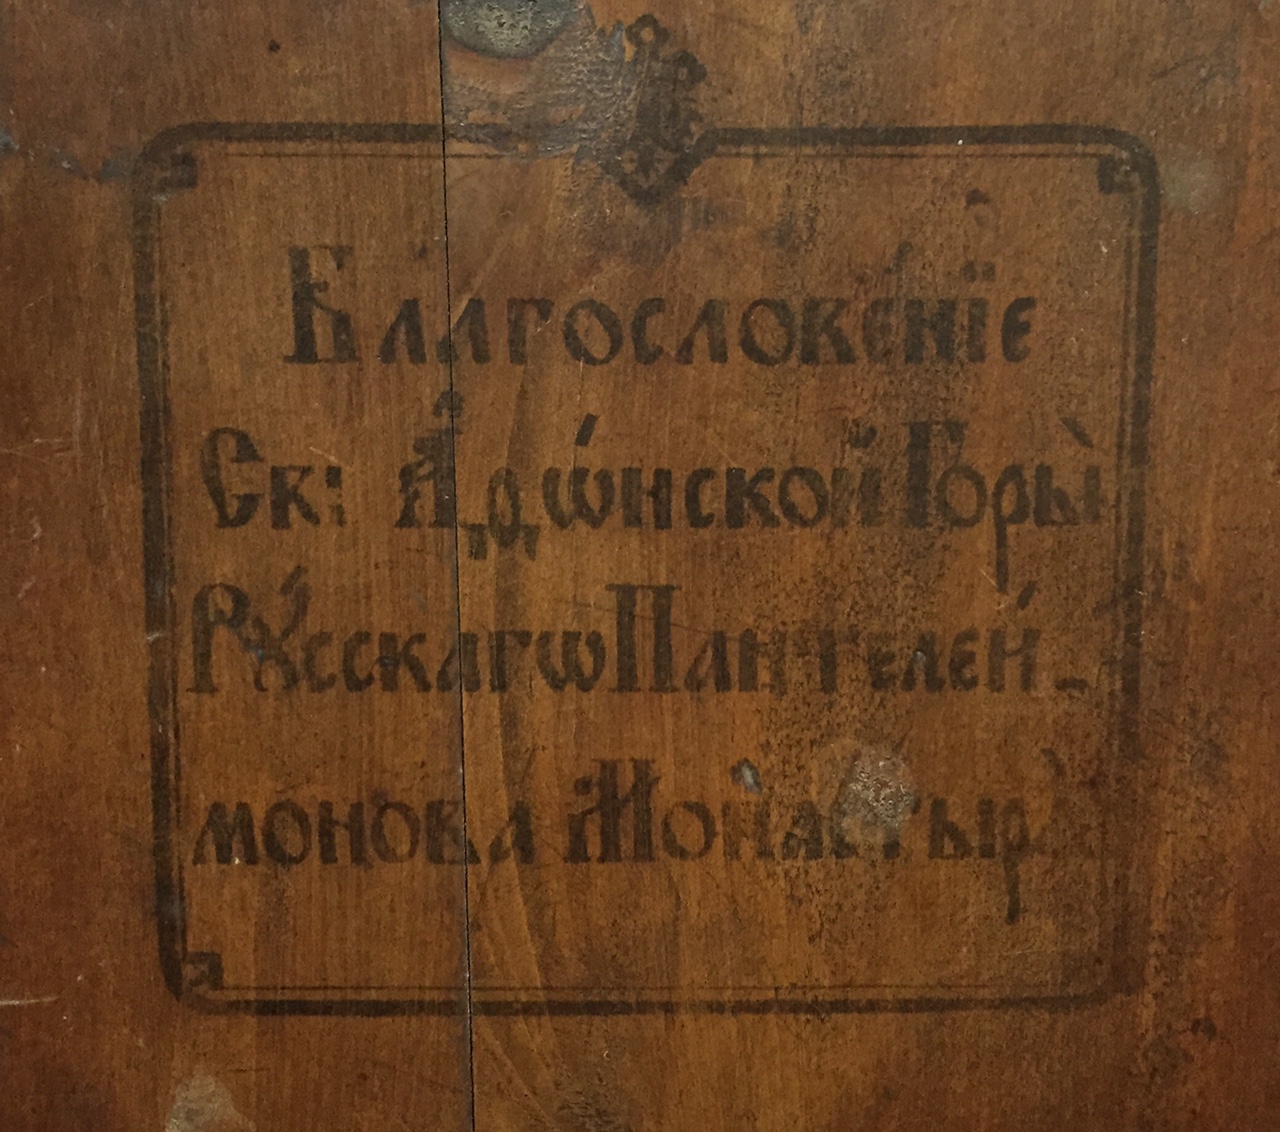 Благословенїе
Св: Аѳѡ́нской Горы̀
Рꙋ́сскагѡ Пантелеи́-
монова Монастырѧ